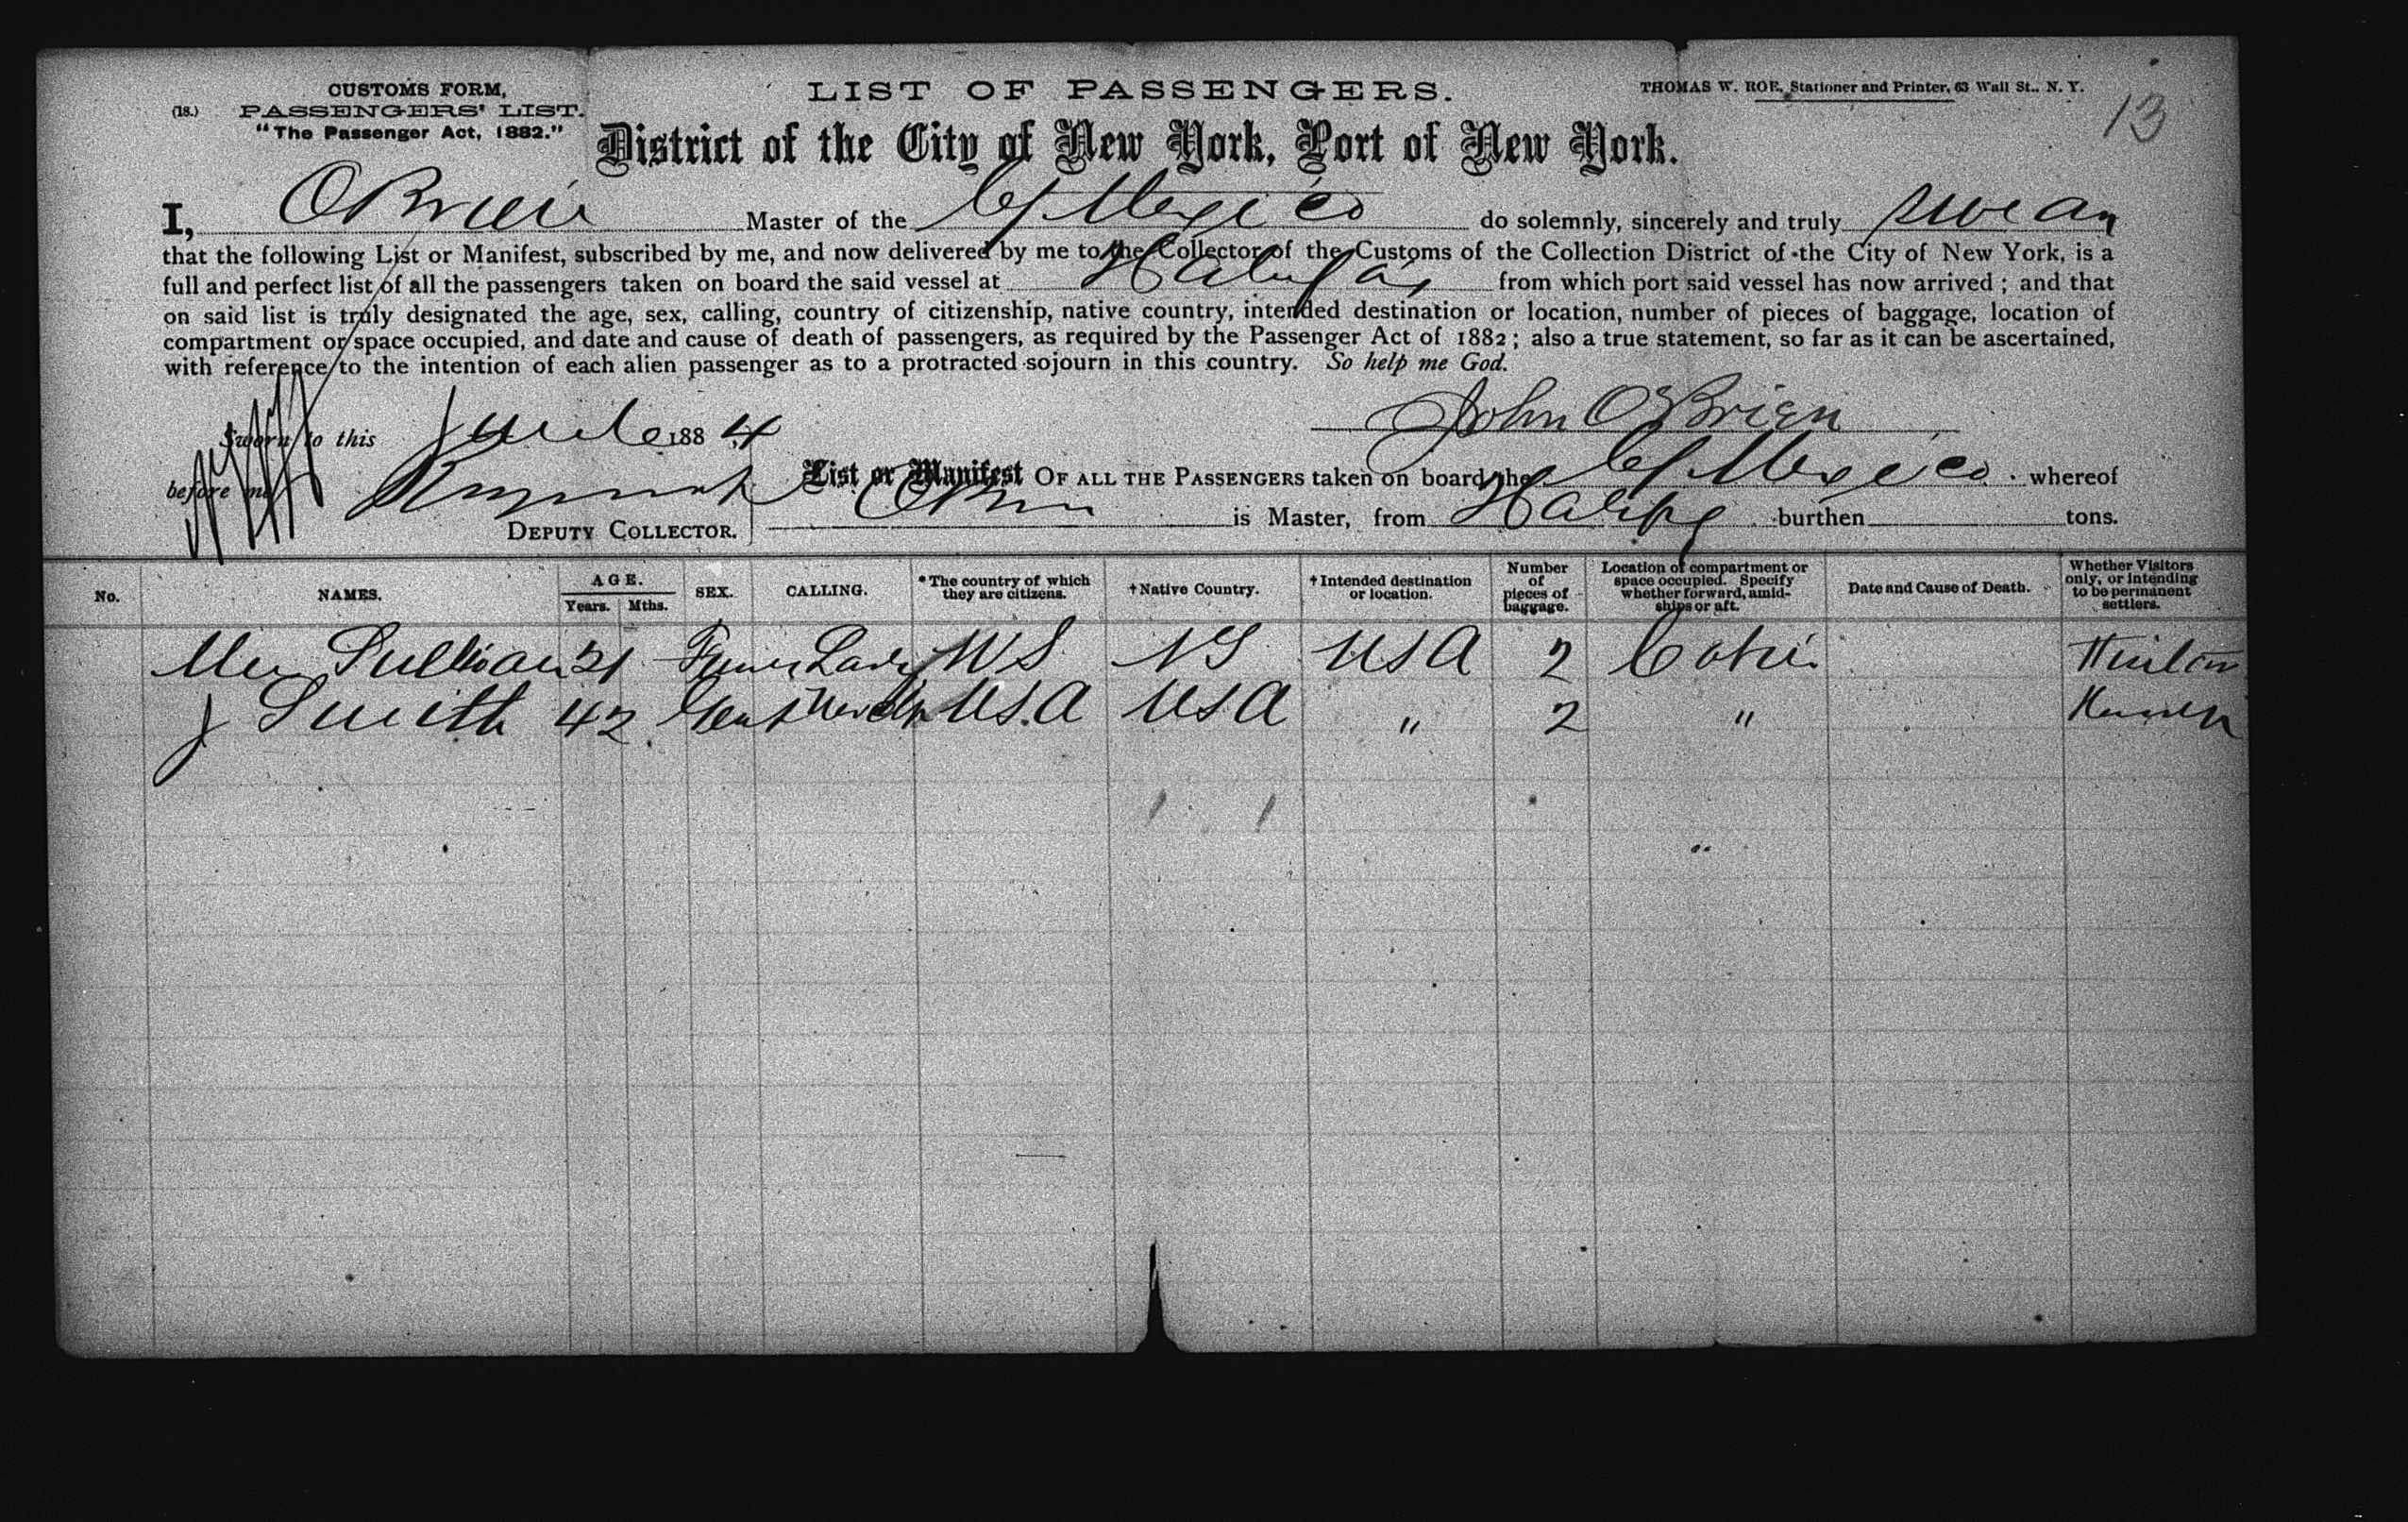 CUSTOMS FORM,
(18.) PASSENGERS' LIST.
"The Passenger Act, 1882."
LIST OF PASSENGERS.
THOMAS W. ROE, Stationer and Printer, 63 Wall St., N. Y.
13
District of the City of New York, Port of New York.
I, OBrien Master of the C of Mexico do solemnly, sincerely and truly swear
that the following List or Manifest, subscribed by me, and now delivered by me to the Collector of the Customs of the Collection District of the City of New York, is a
full and perfect list of all the passengers taken on board the said vessel at Halifax from which port said vessel has now arrived; and that
on said list is truly designated the age, sex, calling, country of citizenship, native country, intended destination or location, number of pieces of baggage, location of
compartment or space occupied, and date and cause of death of passengers, as required by the Passenger Act of 1882; also a true statement, so far as it can be ascertained,
with reference to the intention of each alien passenger as to a protracted sojourn in this country. So help me God.
Sworn to this June 1884
John O'Brien
before me
DEPUTY COLLECTOR.
List or Manifest OF ALL THE PASSENGERS taken on board the C of Mexico whereof
OBrien is Master, from Halifax burthen tons.
No. NAMES. AGE. Years. Mths. SEX. CALLING. *The country of which they are citizens. †Native Country. †Intended destination or location. Number of pieces of baggage. Location of compartment or space occupied. Specify whether forward, amidships or aft. Date and Cause of Death. Whether Visitors only, or intending to be permanent settlers.
Sullivan 21 Lady NS NS USA 2 Cabin
J Smith 42 Gent USA USA " 2 "